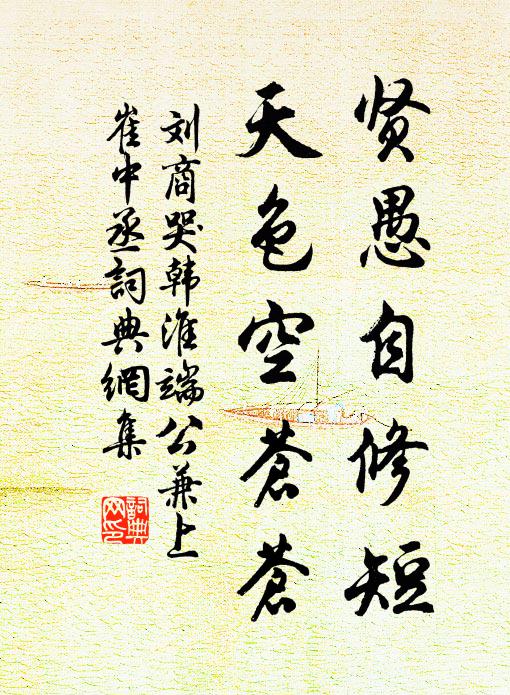 贤愚自修短
天色空苍苍
刘商哭韩淮端公兼上
崔中丞詞典網集
詞典
网印